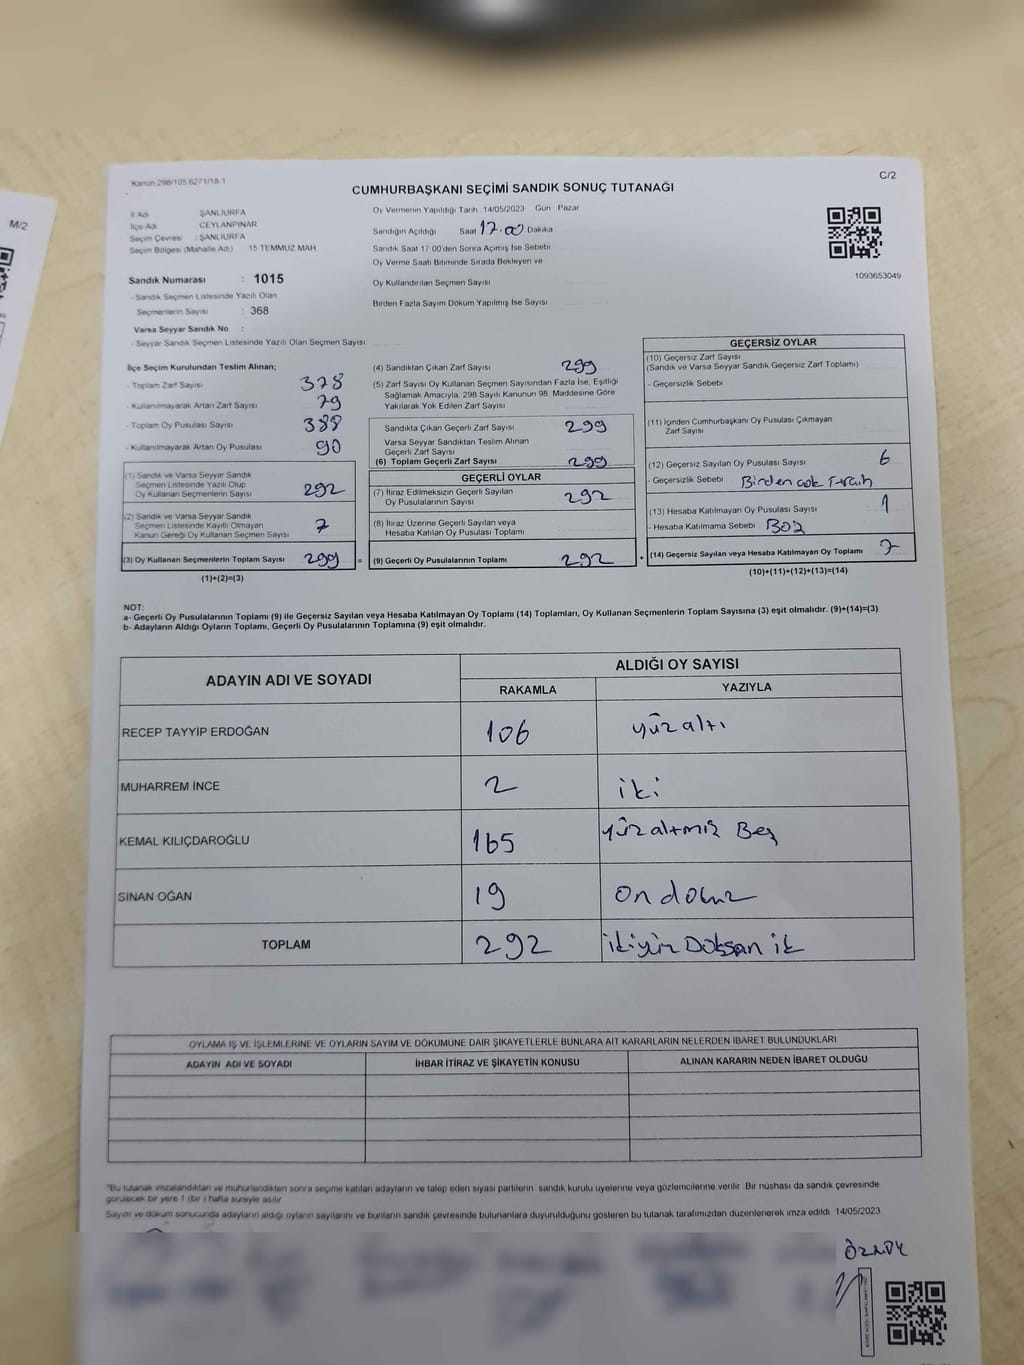 M/2
Kanun 298/105 6271/18-1
C/2
CUMHURBAŞKANI SEÇİMİ SANDIK SONUÇ TUTANAĞI
İl Adı ŞANLIURFA
İlçe Adı CEYLANPINAR
Seçim Çevresi : ŞANLIURFA
Seçim Bölgesi (Mahalle Adı) 15 TEMMUZ MAH.
Oy Vermenin Yapıldığı Tarih 14/05/2023 Gün Pazar
Sandığın Açıldığı Saat 17.00 Dakika
Sandık Saat 17 00'den Sonra Açımış İse Sebebi
Oy Verme Saati Bitiminde Sırada Bekleyen ve
Oy Kullandırılan Seçmen Sayısı
Birden Fazla Sayım Döküm Yapılmış İse Sayısı
1093653049
Sandık Numarası : 1015
- Sandık Seçmen Listesinde Yazılı Olan
Seçmenlerin Sayısı : 368
Varsa Seyyar Sandık No :
- Seyyar Sandık Seçmen Listesinde Yazılı Olan Seçmen Sayısı
İlçe Seçim Kurulundan Teslim Alınan;
- Toplam Zarf Sayısı 378
- Kullanılmayarak Artan Zarf Sayısı 79
- Toplam Oy Pusulası Sayısı 388
- Kullanılmayarak Artan Oy Pusulası 90
(1) Sandık ve Varsa Seyyar Sandık
Seçmen Listesinde Yazılı Olup
Oy Kullanan Seçmenlerin Sayısı 292
(2) Sandık ve Varsa Seyyar Sandık
Seçmen Listesinde Kayıtlı Olmayan
Kanun Gereği Oy Kullanan Seçmen Sayısı 7
(3) Oy Kullanan Seçmenlerin Toplam Sayısı 299 =
(1)+(2)=(3)
(4) Sandıktan Çıkan Zarf Sayısı 299
(5) Zarf Sayısı Oy Kullanan Seçmen Sayısından Fazla İse, Eşitliği
Sağlamak Amacıyla, 298 Sayılı Kanunun 98. Maddesine Göre
Yakılarak Yok Edilen Zarf Sayısı
Sandıkta Çıkan Geçerli Zarf Sayısı 299
Varsa Seyyar Sandıktan Teslim Alınan
Geçerli Zarf Sayısı
(6) Toplam Geçerli Zarf Sayısı 299
GEÇERLİ OYLAR
(7) İtiraz Edilmeksizin Geçerli Sayılan
Oy Pusulalarının Sayısı 292
(8) İtiraz Üzerine Geçerli Sayılan veya
Hesaba Katılan Oy Pusulası Toplamı
(9) Geçerli Oy Pusulalarının Toplamı 292 +
GEÇERSİZ OYLAR
(10) Geçersiz Zarf Sayısı
(Sandık ve Varsa Seyyar Sandık Geçersiz Zarf Toplamı)
- Geçersizlik Sebebi
(11) İçinden Cumhurbaşkanı Oy Pusulası Çıkmayan
Zarf Sayısı
(12) Geçersiz Sayılan Oy Pusulası Sayısı 6
- Geçersizlik Sebebi Birden çok
(13) Hesaba Katılmayan Oy Pusulası Sayısı 1
- Hesaba Katılmama Sebebi Boş
(14) Geçersiz Sayılan veya Hesaba Katılmayan Oy Toplamı 7
(10)+(11)+(12)+(13)=(14)
NOT:
a- Geçerli Oy Pusulalarının Toplamı (9) ile Geçersiz Sayılan veya Hesaba Katılmayan Oy Toplamı (14) Toplamları, Oy Kullanan Seçmenlerin Toplam Sayısına (3) eşit olmalıdır. (9)+(14)=(3)
b- Adayların Aldığı Oyların Toplamı, Geçerli Oy Pusulalarının Toplamına (9) eşit olmalıdır.
ADAYIN ADI VE SOYADI ALDIĞI OY SAYISI
RAKAMLA YAZIYLA
RECEP TAYYİP ERDOĞAN 106 yüz altı
MUHARREM İNCE 2 iki
KEMAL KILIÇDAROĞLU 165 yüz altmış Beş
SİNAN OĞAN 19 on dokuz
TOPLAM 292 ikiyüz Doksan iki
OYLAMA İŞ VE İŞLEMLERİNE VE OYLARIN SAYIM VE DÖKÜMÜNE DAİR ŞİKAYETLERLE BUNLARA AİT KARARLARIN NELERDEN İBARET BULUNDUKLARI
ADAYIN ADI VE SOYADI İHBAR İTİRAZ VE ŞİKAYETİN KONUSU ALINAN KARARIN NEDEN İBARET OLDUĞU
*Bu tutanak imzalandıktan ve mühürlendikten sonra seçime katılan adayların ve talep eden siyasi partilerin sandık kurulu üyelerine veya gözlemcilerine verilir Bir nüshası da sandık çevresinde
görülecek bir yere 1 (bir ) hafta süreyle asılır
Sayım ve döküm sonucunda adayların aldığı oyların sayılarını ve bunların sandık çevresinde bulunanlara duyurulduğunu gösteren bu tutanak tarafımızdan düzenlenerek imza edildi 14/05/2023